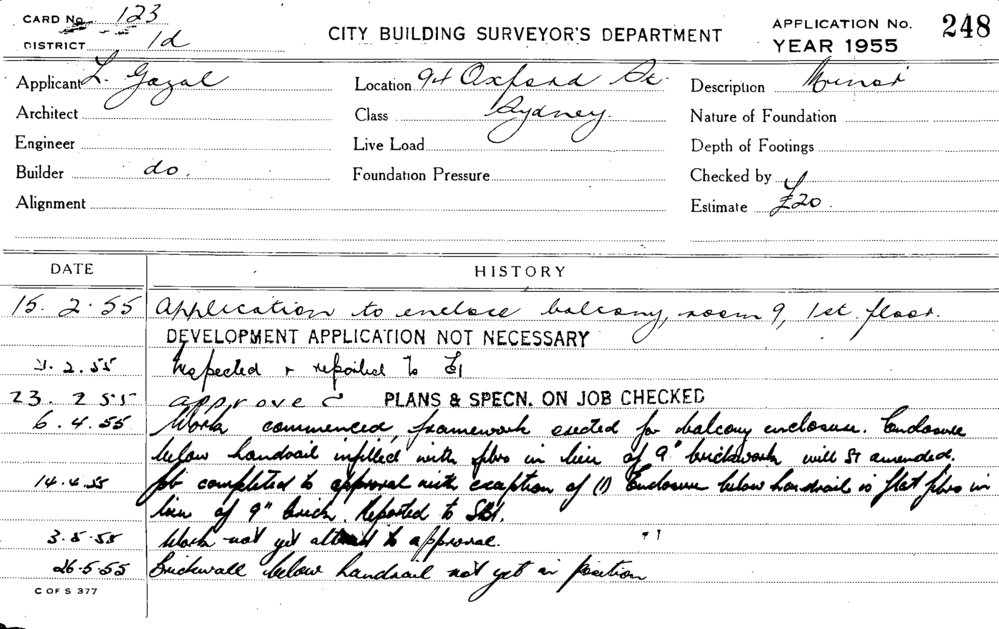 CARD No. 123
DISTRICT 1d
CITY BUILDING SURVEYOR'S DEPARTMENT
APPLICATION No. 248
YEAR 1955
Applicant L. Gazal
Location 94 Oxford St.
Description Minor
Architect
Class Sydney.
Nature of Foundation
Engineer
Live Load
Depth of Footings
Builder do.
Foundation Pressure
Checked by
Alignment
Estimate £20.
DATE HISTORY
15.2.55 Application to enclose balcony, room 9, 1st. floor.
DEVELOPMENT APPLICATION NOT NECESSARY
.2.55 Inspected & reported to
23. 2 55 approved PLANS & SPECN. ON JOB CHECKED
6.4.55 Work commenced, framework erected for balcony enclosure. Enclosure
below handrail infilled with fibro in lieu of 9" brickwork will amended.
14.4.55 Job completed to approval with exception of (1) Enclosure below handrail is flat fibro in
lieu of 9" brick. Reported to SBI.
3.5.55 Work not yet to approval. " 1
26.5.55 Brickwall below handrail not yet in position
C OF S 377